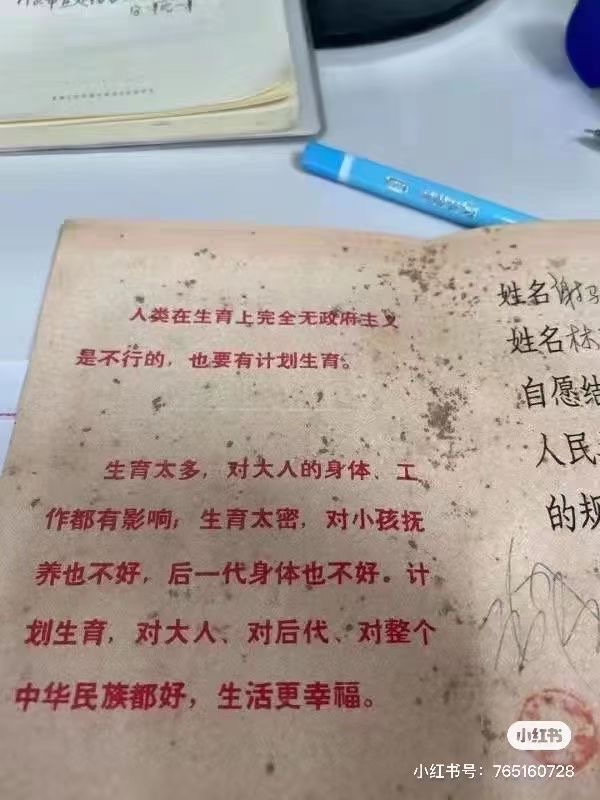 人类在生育上完全无政府主义
是不行的，也要有计划生育。
生育太多，对大人的身体、工
作都有影响；生育太密，对小孩抚
养也不好，后一代身体也不好。计
划生育，对大人、对后代、对整个
中华民族都好，生活更幸福。
姓名谢
姓名林
自愿结
人民
的规
小红书
小红书号：765160728